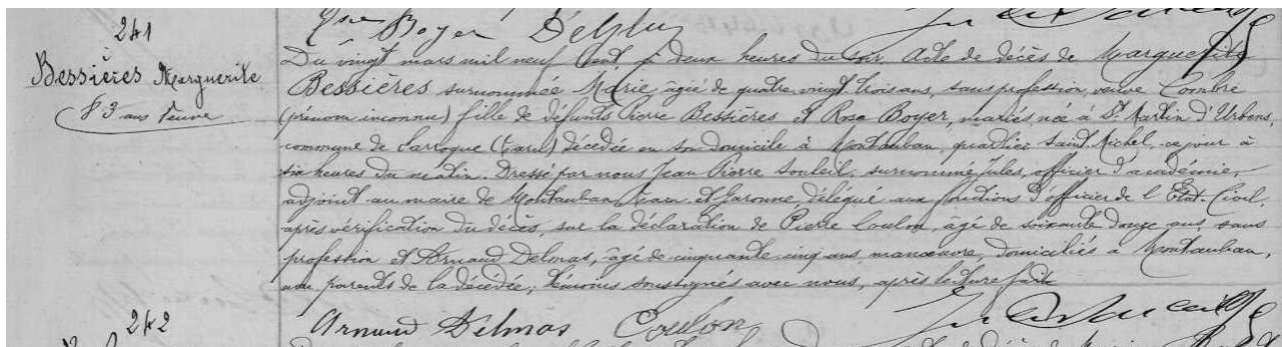 241
Boyer Delmas
Bessières Marguerite
83 ans Veuve
Du vingt mars mil neuf Cent, à deux heures du soir. Acte de décès de Marguerite
Bessières surnommée Marie, âgée de quatre vingt trois ans, sans profession, veuve Combre
(prénom inconnu) fille de défunts Pierre Bessières et Rose Boyer, mariés, née à St. Martin d'Urbens,
commune de Larroque (Tarn) décédée en son domicile à Montauban, quartier Saint Michel, ce jour à
six heures du matin. Dressé par nous Jean Pierre Souleil, surnommé Jules, officier d'académie,
adjoint au maire de Montauban, Tarn et Garonne, délégué aux fonctions d'officier de l'Etat-Civil,
après vérification du décès, sur la déclaration de Pierre Coulon, âgé de soixante douze ans, sans
profession et Arnaud Delmas, âgé de cinquante cinq ans, manœuvre, domiciliés à Montauban,
non parents de la décédée, témoins soussignés avec nous, après lecture faite
242
Arnaud Delmas Coulon